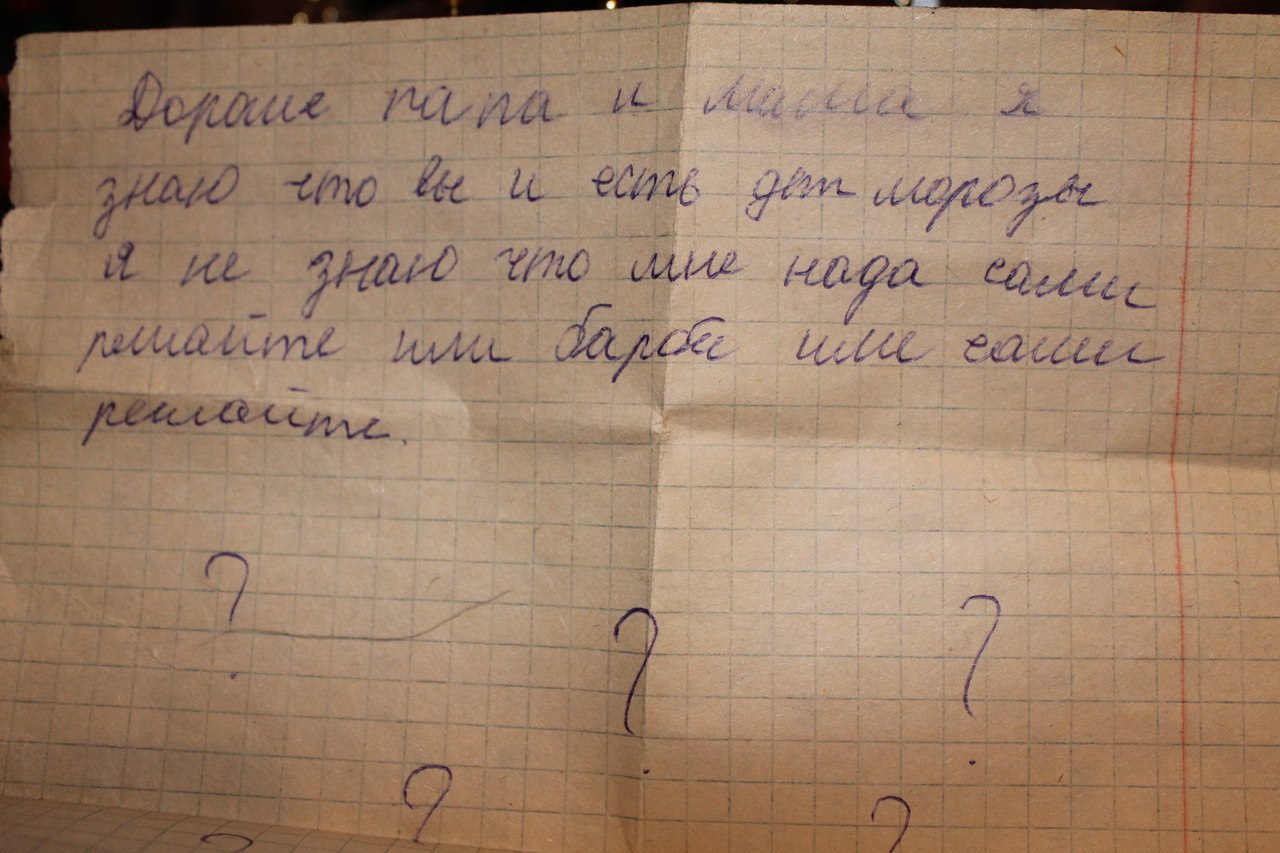 Дорогие папа и мама я
знаю что вы и есть дет морозы
я не знаю что мне нада сами
решайте или барби или сами
решайте.
?
? ?
? ?
?